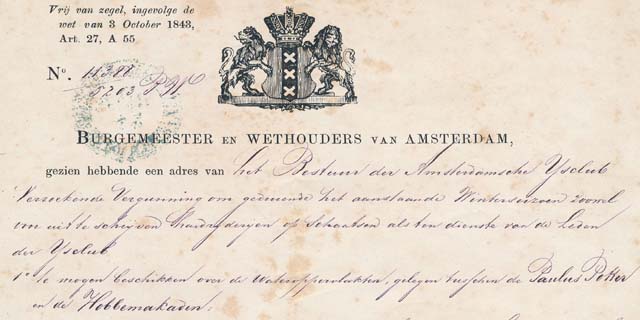 Vrij van zegel, ingevolge de
wet van 3 October 1843,
Art. 27, A 55
No.
5203 P.W.
BURGEMEESTER EN WETHOUDERS VAN AMSTERDAM,
gezien hebbende een adres van het Bestuur der Amsterdamsche Ysclub
Verzoekende Vergunning om gedurende het aanstaande Winterseizoen zoowel
voor uit te schrijven Hardryderyen op Schaatsen als ten dienste van de Leden
der Ysclub
1o te mogen beschikken over de Wateroppervlakten, gelegen tusschen de Paulus Potter
en de Hobbemakaden,